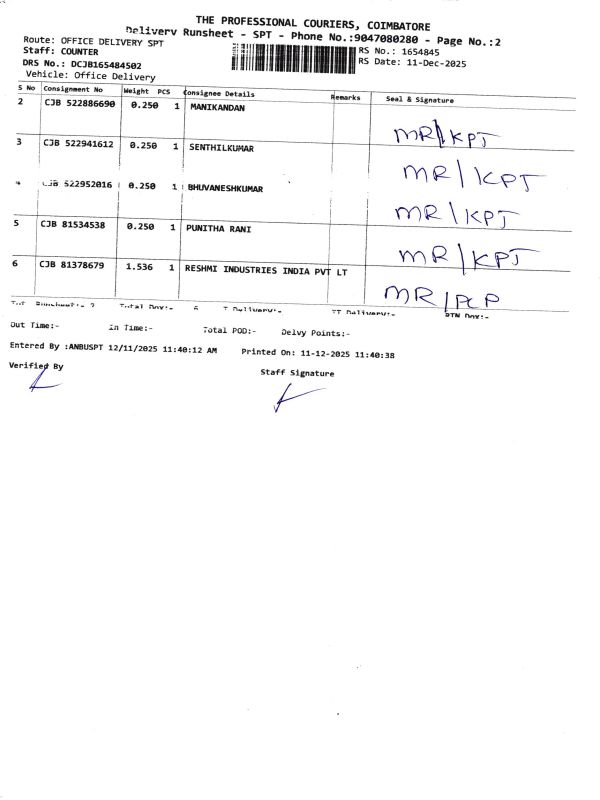 THE PROFESSIONAL COURIERS, COIMBATORE
Delivery Runsheet - SPT - Phone No.:9047080280 - Page No.:2
Route: OFFICE DELIVERY SPT
RS No.: 1654845
Staff: COUNTER
RS Date: 11-Dec-2025
DRS No.: DCJB165484502
Vehicle: Office Delivery
S No Consignment No Weight PCS Consignee Details Remarks Seal & Signature
2 CJB 522886690 0.250 1 MANIKANDAN MR/KPJ
3 CJB 522941612 0.250 1 SENTHILKUMAR MR/KPJ
4 CJB 522952016 0.250 1 BHUVANESHKUMAR MR/KPJ
5 CJB 81534538 0.250 1 PUNITHA RANI MR/KPJ
6 CJB 81378679 1.536 1 RESHMI INDUSTRIES INDIA PVT LT MR/PCP
Out Time:- In Time:- Total POD:- Delvy Points:-
Entered By :ANBUSPT 12/11/2025 11:40:12 AM Printed On: 11-12-2025 11:40:38
Verified By
Staff Signature